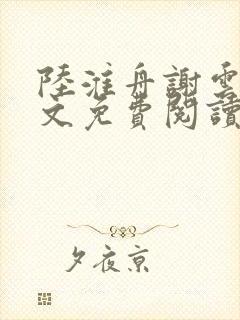 陸淮舟謝雲
文免費閱讀
夕夜京